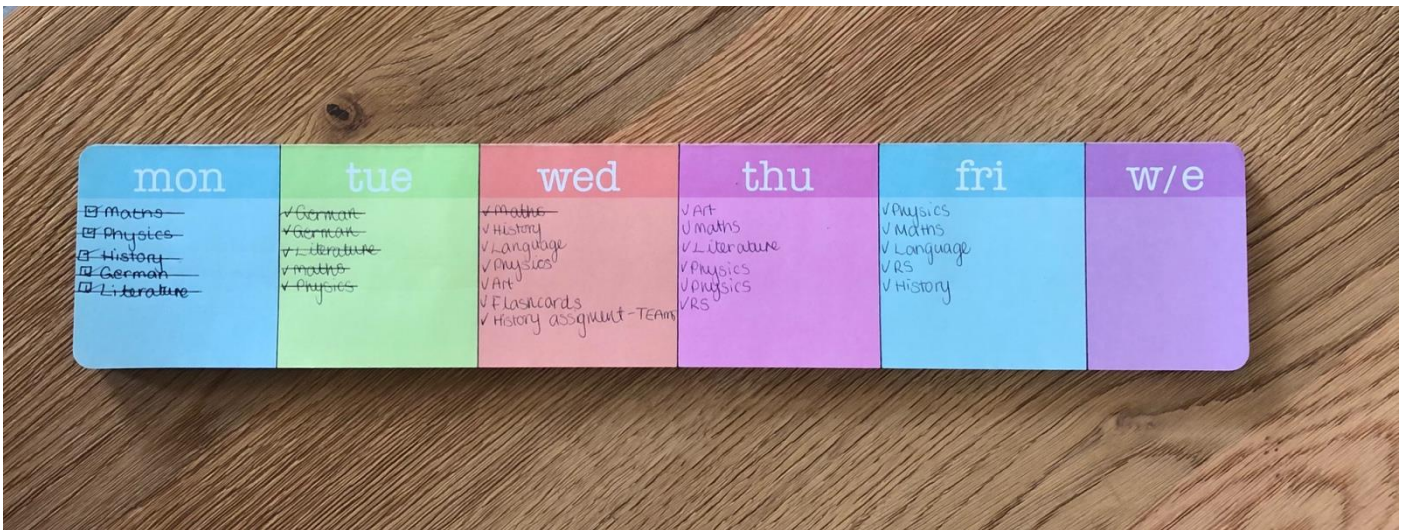 mon
Maths
Physics
History
German
Literature
tue
German
German
Literature
maths
Physics
wed
Maths
History
Language
Physics
Art
Flashcards
History assgment-TEAMS
thu
Art
maths
Literature
Physics
Physics
RS
fri
Physics
Maths
Language
RS
History
w/e